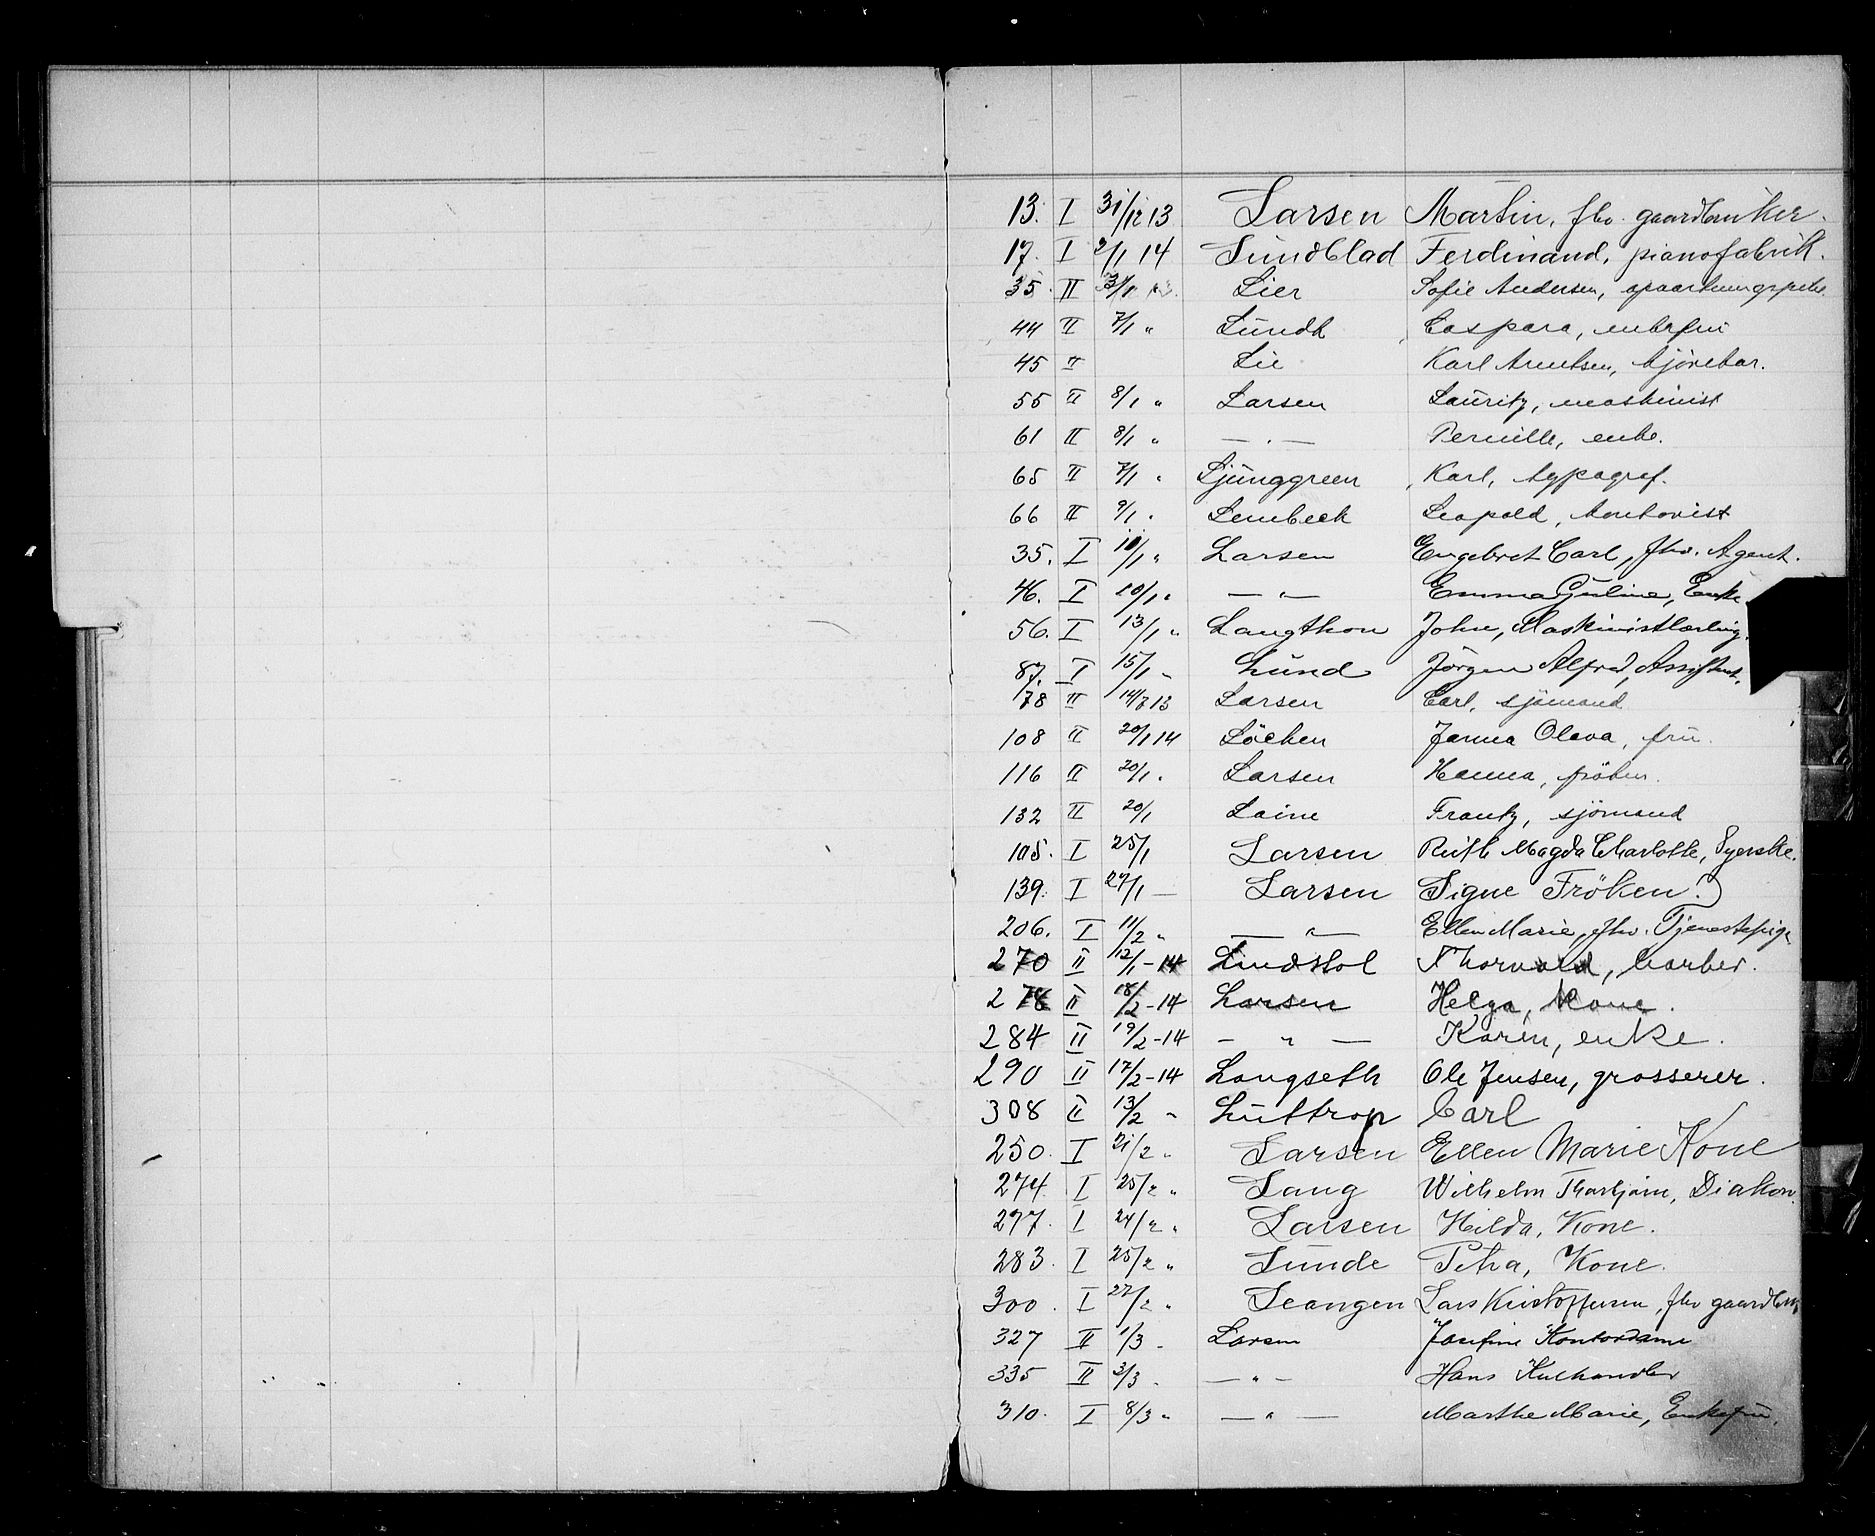 13. I 31/12 13 Larsen Martin, fhv. gaardbruker.
17. I 2/1 14 Lundblad Ferdinand, pianofabrik.
35. II 3/1 Lier Sofie Andersen,
44 II 7/1 " Lundh Caspara, enkefru
45 II Lie Karl Arntsen, kjörekar.
55 II 8/1 " Larsen Lauritz, maskinist
61 II 8/1 " — " — Pernille, enke.
65 II 7/1 " Ljunggreen Karl, typograf.
66 II 9/1 " Lembeck Leopold, kontorist
35. I 11/1 " Larsen Engebret Carl, fhv. Agent.
46. I 10/1 " — " — Emma Guline, Enke
56. I 13/1 " Langthon John, Maskinistlærling.
87. I 15/1 " Lund Jörgen Alfred, Assistent.
78 II 14/8 13 Larsen Carl, sjömand
108 II 20/1 14 Löcken Janna Olava, fru.
116 II 20/1 " Larsen Hanna, fröken.
132 II 20/1 Laine Frantz, sjömand
105. I 25/1 Larsen Ruth Magda Charlotte, Syerske.
139. I 27/1 — Larsen Signe Fröken.
206. I 11/2 " — " — Ellen Marie, fhv. Tjenestepige
270 II 12/1 - 14 Lindstol Thorvald, barber.
278 II 18/2 - 14 Larsen Helga, Kone.
284 II 19/2 - 14 — " — Karen, enke.
290 II 17/2 - 14 Langseth Ole Jensen, grosserer.
308 II 13/2 " Luttrop Carl
250. I 21/2 " Larsen Ellen Marie Kone
274. I 25/2 " Lang Wilhelm Thorbjørn, Diakon.
277. I 24/2 " Larsen Hilda, Kone.
283. I 25/2 " Lunde Petra, Kone.
300. I 27/2 " Leangen Lars Kristoffersen, fhv gaardbr
327 II 1/3 " Larsen Josefine Kontordame
335 II 3/3 " — " — Hans Kulhandler
310. I 8/3 " — " — Marthe Marie, Enkefru.